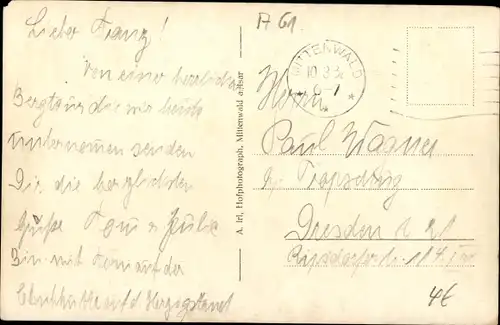 Lieber Franz!
Von einer herrlichen
Bergtour die wir heute
unternommen senden
Dir die herzlichsten
Grüße Toni u.
Bin mit Toni auf der
Herzogstand
A. Irl, Hofphotograph, Mittenwald a. Isar
A 61
MITTENWALD
10.3.
Herrn
Paul Wagner
Dresden A 21
4€